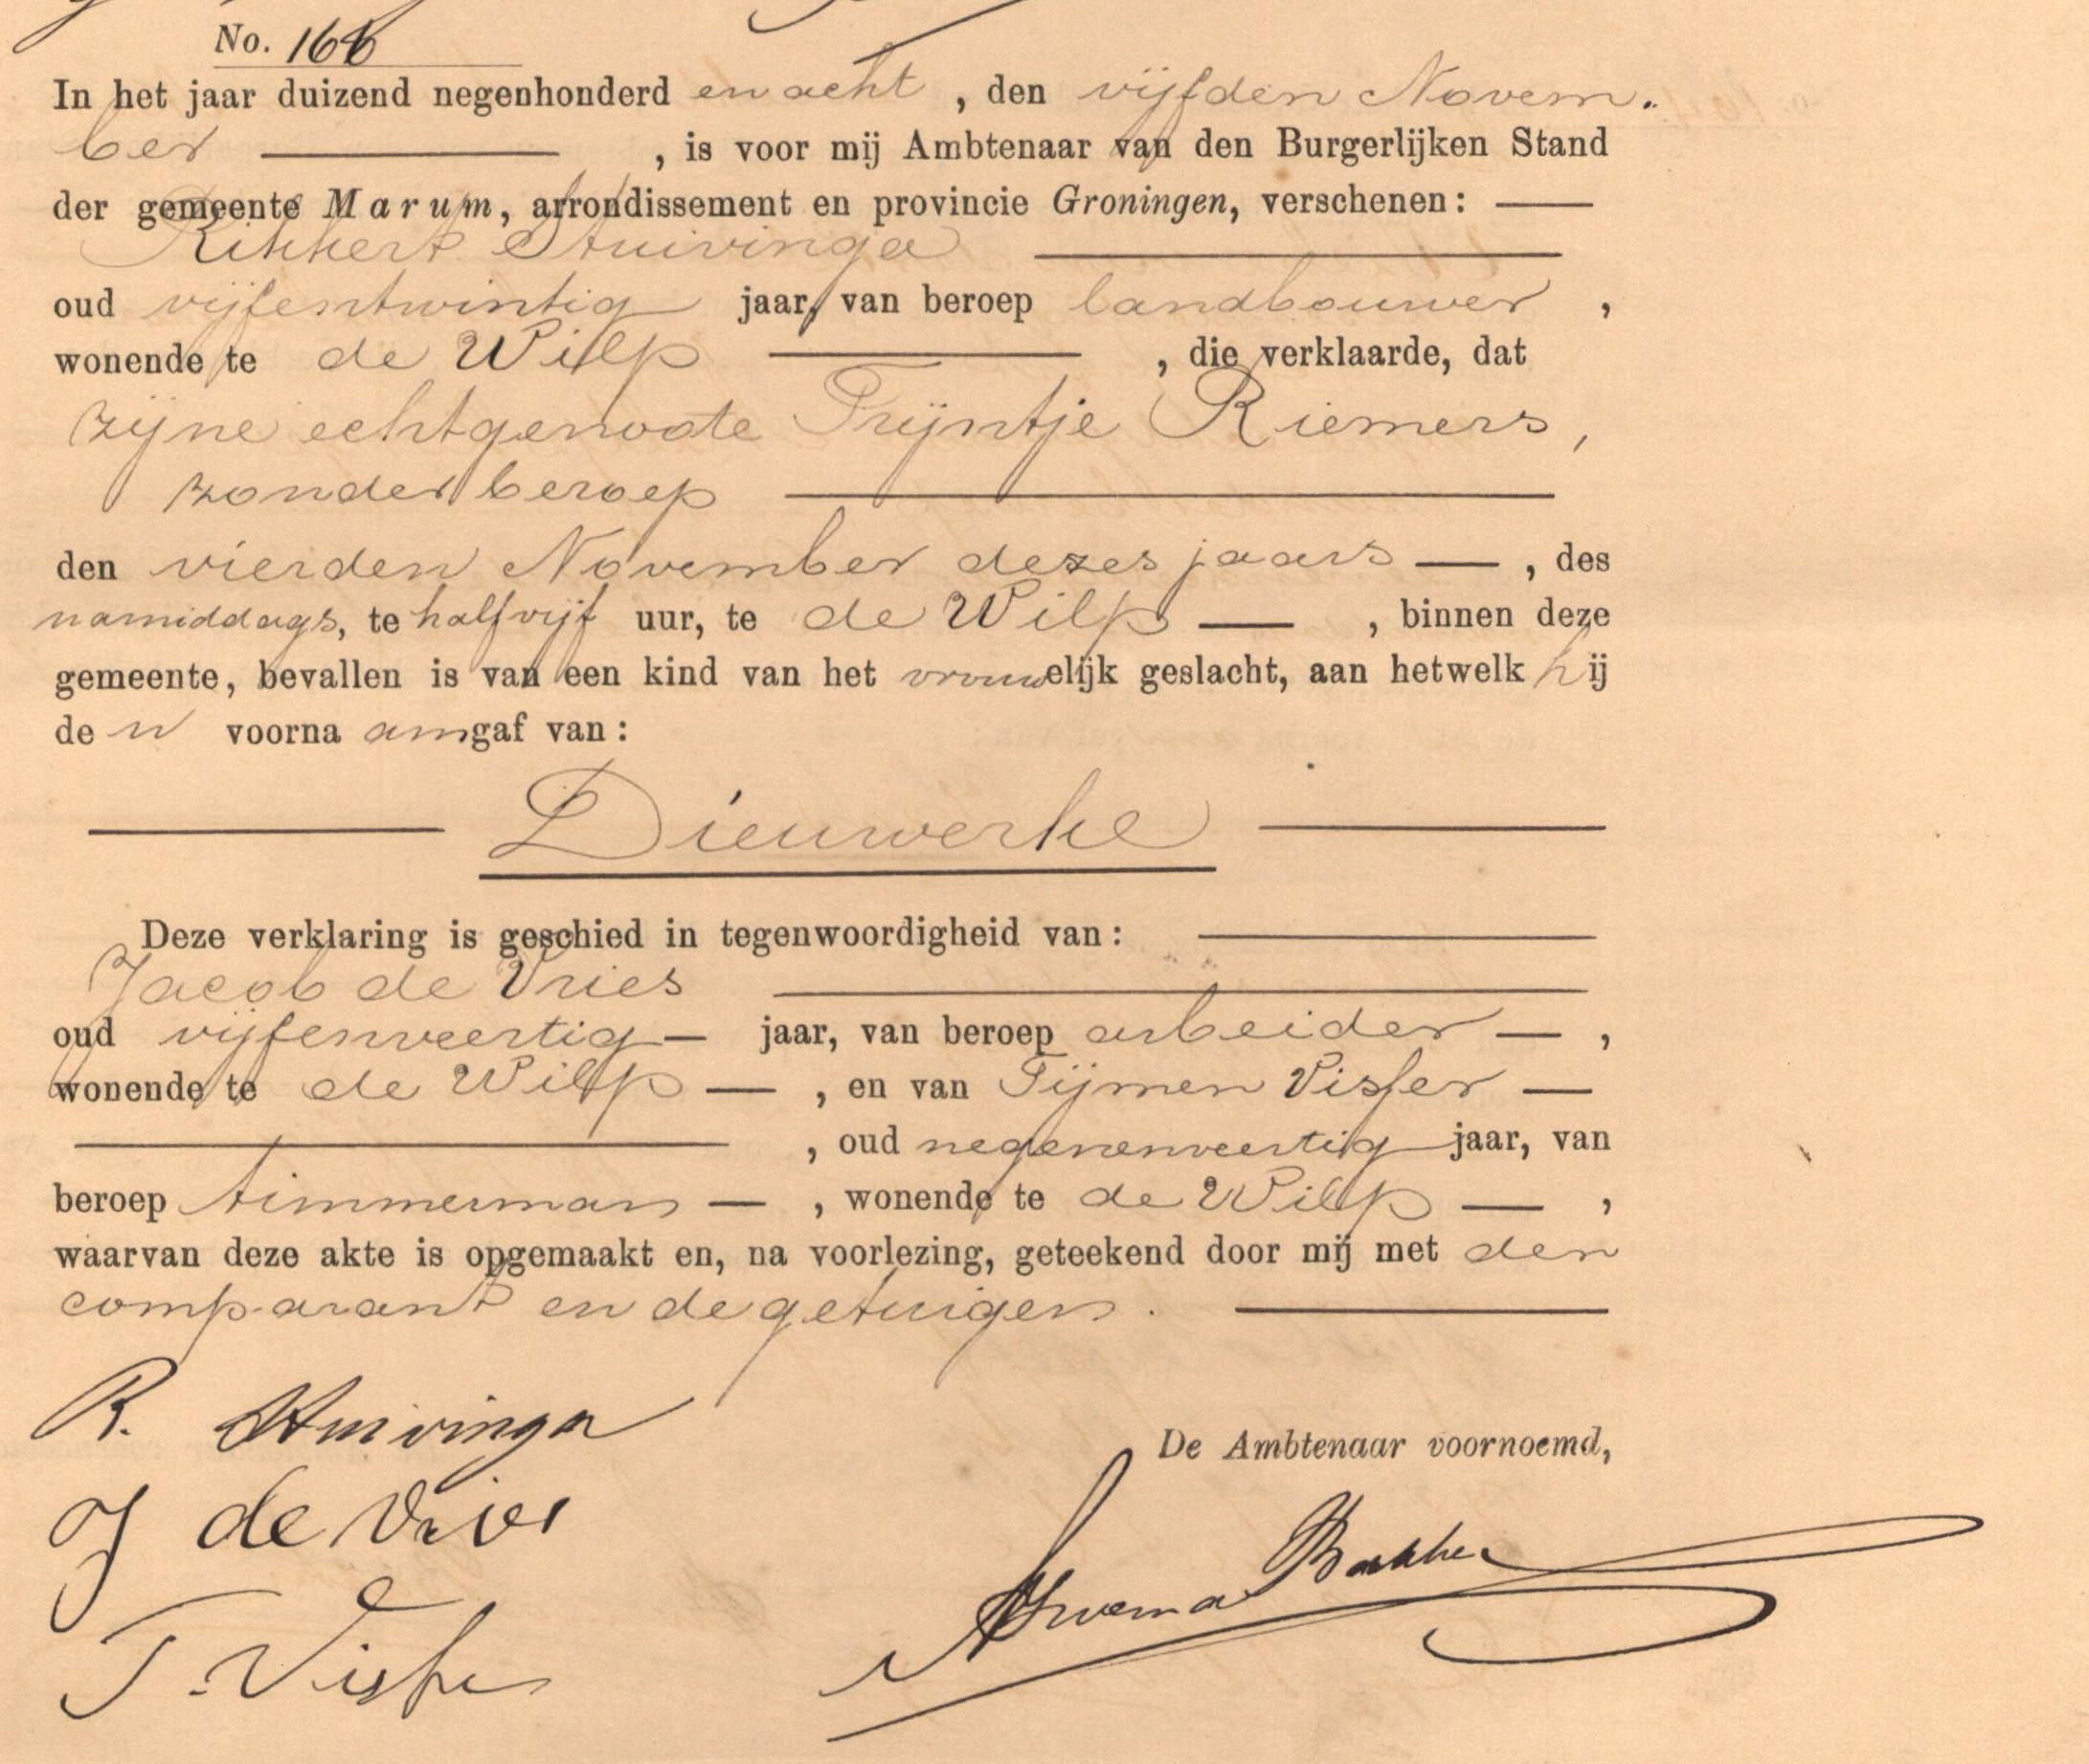 No. 166
In het jaar duizend negenhonderd en acht, den vijfden Novem-
ber, is voor mij Ambtenaar van den Burgerlijken Stand
der gemeente Marum, arrondissement en provincie Groningen, verschenen:
Rikkert Stuivinga
oud vijfentwintig jaar, van beroep landbouwer,
wonende te de Wilp, die verklaarde, dat
zijne echtgenoote Trijntje Riemers,
zonder beroep
den vierden November dezes jaars, des
namiddags, te half vijf uur, te de Wilp, binnen deze
gemeente, bevallen is van een kind van het vrouwelijk geslacht, aan hetwelk hij
den voornaam gaf van:
Dieuwerke
Deze verklaring is geschied in tegenwoordigheid van:
Jacob de Vries
oud vijfenveertig jaar, van beroep arbeider,
wonende te de Wilp, en van Tijmen Visser
, oud negenenveertig jaar, van
beroep timmerman, wonende te de Wilp,
waarvan deze akte is opgemaakt en, na voorlezing, geteekend door mij met den
comparant en de getuigen.
R. Stuivinga
De Ambtenaar voornoemd,
J de Vries
Bakker
T. Visser